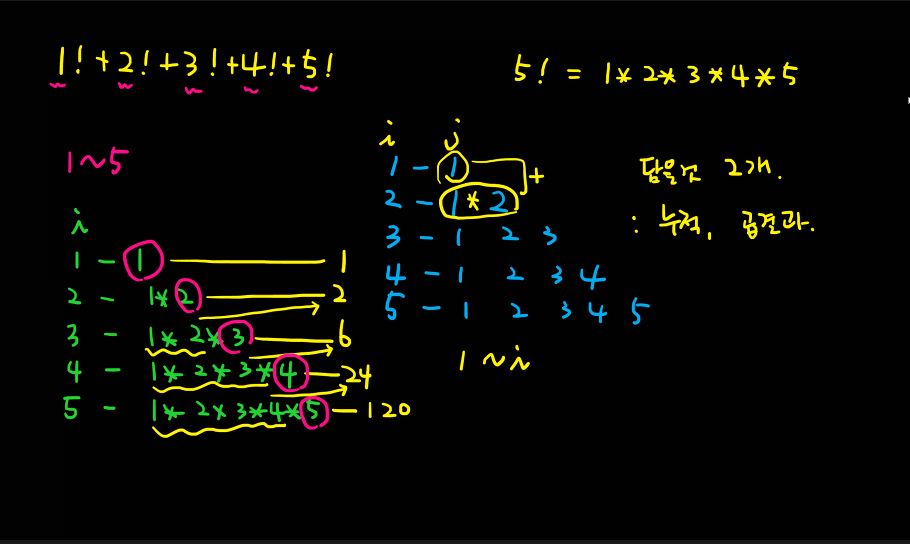 1! + 2! + 3! + 4! + 5!
5! = 1 * 2 * 3 * 4 * 5
1 ~ 5
i
1 - 1 1
2 - 1 * 2 2
3 - 1 * 2 * 3 6
4 - 1 * 2 * 3 * 4 - 24
5 - 1 * 2 * 3 * 4 * 5 - 120
i j
1 - 1 +
2 - 1 * 2
3 - 1 2 3
4 - 1 2 3 4
5 - 1 2 3 4 5
1 ~ i
담을소 2개.
: 누적, 곱결과.